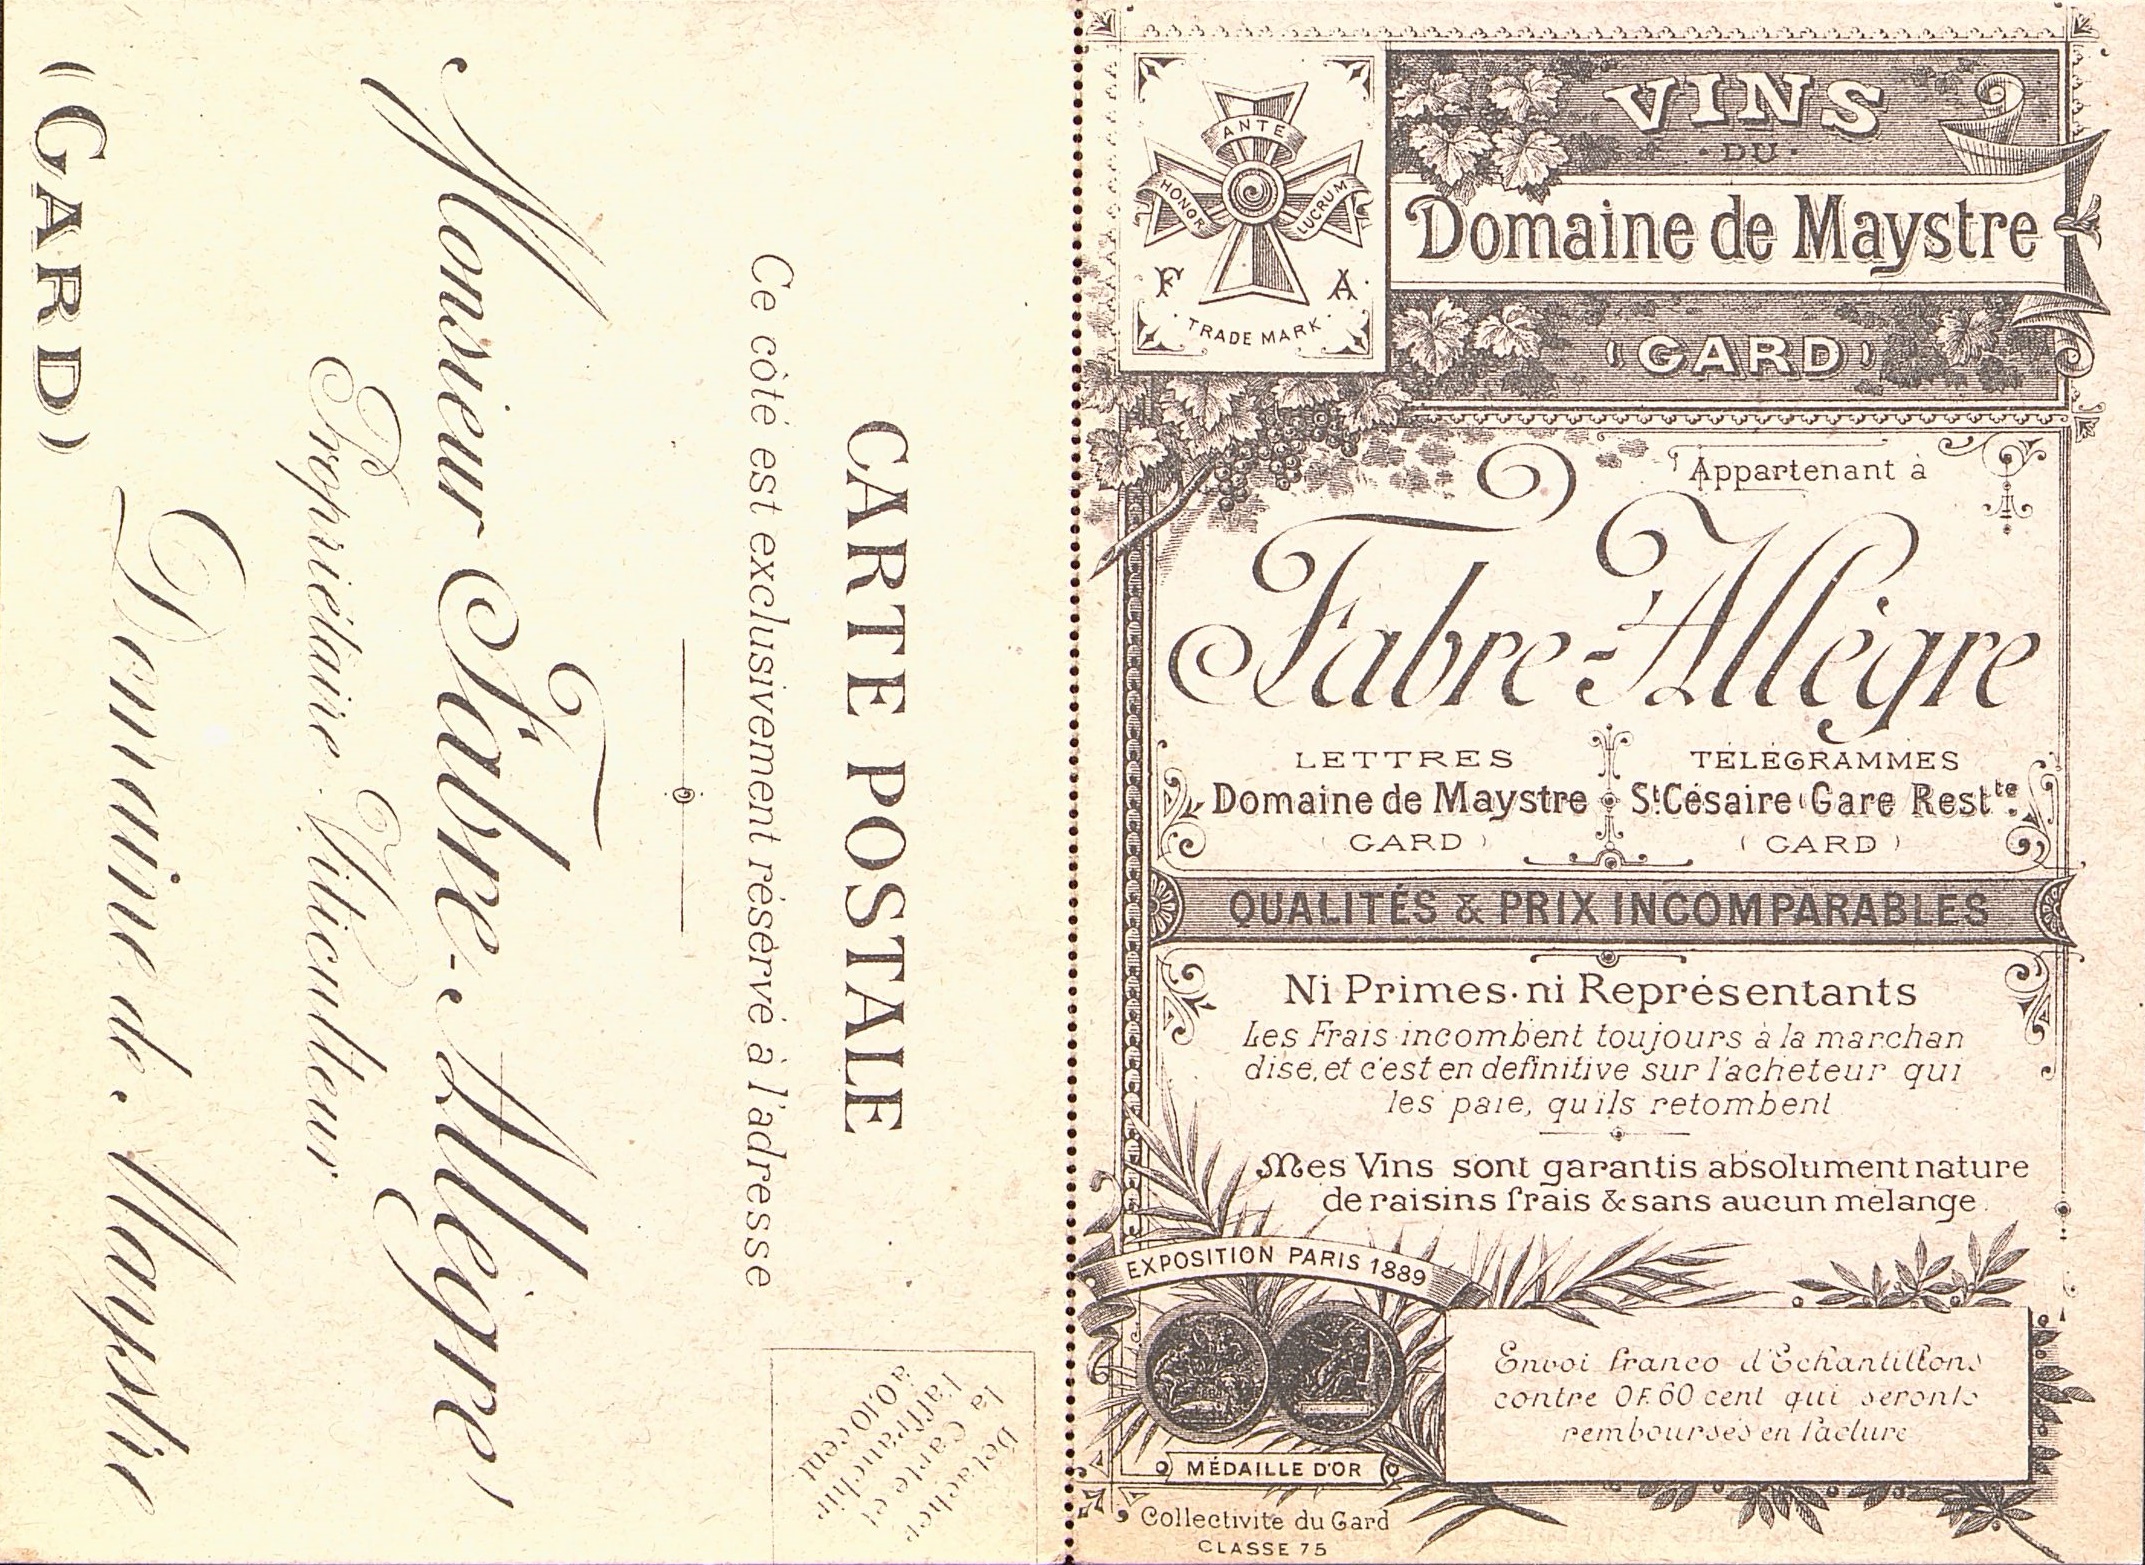 CARTE POSTALE
Ce côté est exclusivement réservé à l'adresse
Détacher
la Carte et
l'affranchir
à 0,10 cent.
Monsieur Fabre-Allègre
Propriétaire-Viticulteur
Domaine de Maystre
(GARD)
ANTE
HONOR
LUCRUM
F A
TRADE MARK
VINS
DU
Domaine de Maystre
(GARD)
Appartenant à
Fabre-Allègre
LETTRES
Domaine de Maystre
(GARD)
TÉLÉGRAMMES
St Césaire Gare Restte
(GARD)
QUALITÉS & PRIX INCOMPARABLES
Ni Primes. ni Représentants
Les Frais incombent toujours à la marchan
dise, et c'est en definitive sur l'acheteur qui
les paie, qu'ils retombent
Mes Vins sont garantis absolument nature
de raisins frais & sans aucun mélange.
EXPOSITION PARIS 1889
MÉDAILLE D'OR
Collectivité du Gard
CLASSE 75
Envoi franco d'Echantillons
contre 0F.60 cent qui seronts
remboursés en facture